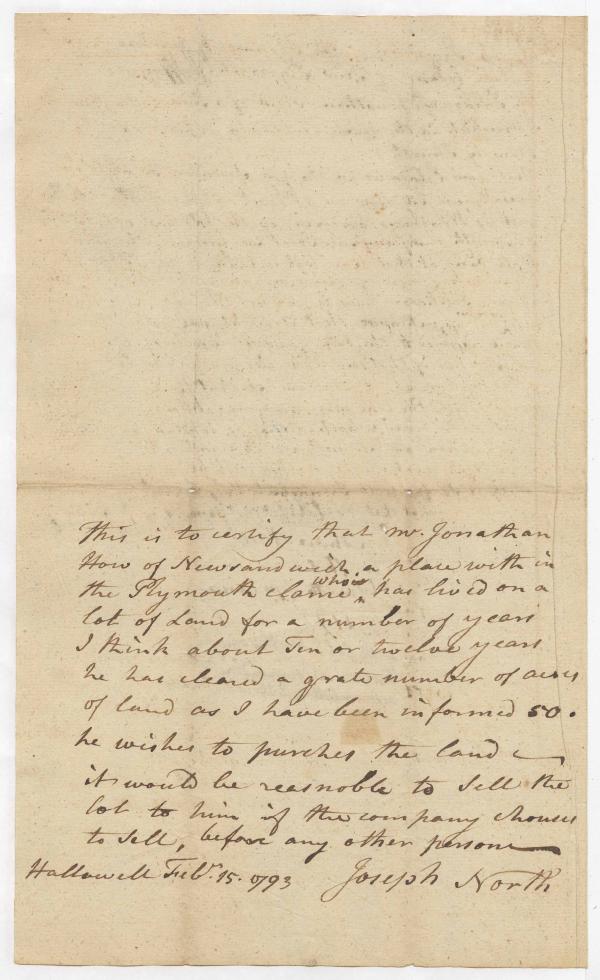 This is to certify that mr. Jonathan
How of Newsandwich, a place with in
the Plymouth claime, who has lived on a
lot of Land for a number of years
I think about Ten or twelve years
he has cleared a grate number of acres
of land as I have been informed 50.
he wishes to purches the land
it would be reasnoble to sell the
lot to him if the company chouses
to sell, before any other persone
Hallowell Feby. 15. 1793 Joseph North